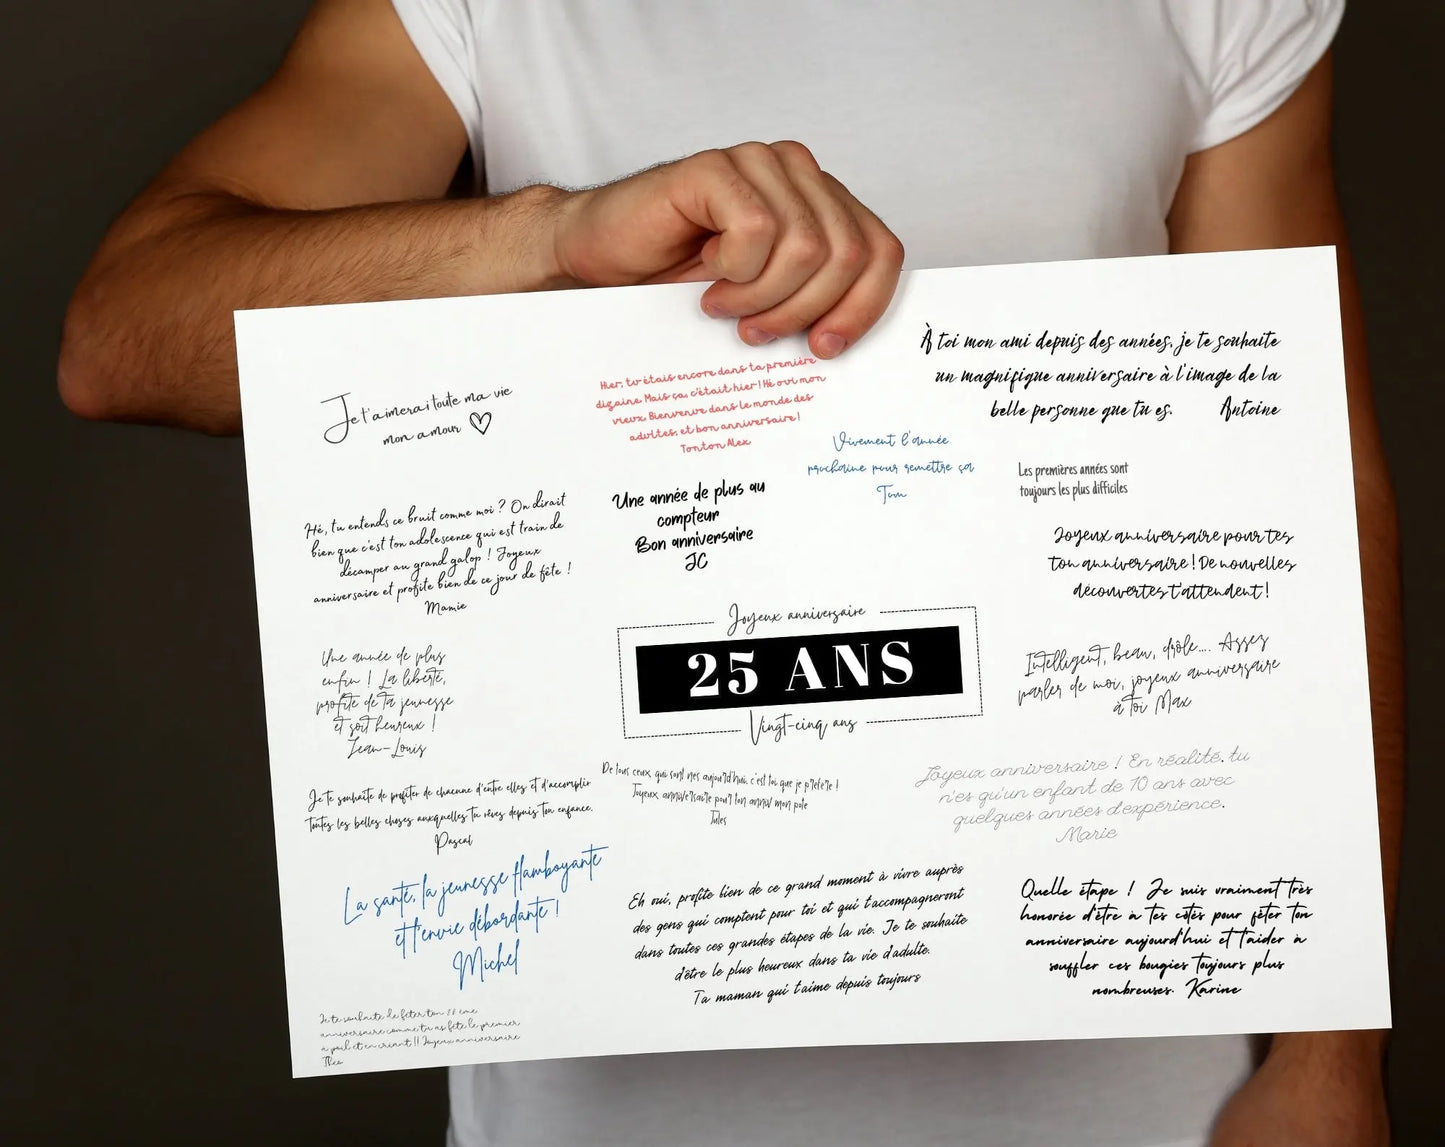 Je t'aimerai toute ma vie
mon amour
Hier, tu étais encore dans ta première
dizaine. Mais ça, c'était hier ! Hé oui mon
vieux. Bienvenue dans le monde des
adultes, et bon anniversaire !
Tonton Alex
À toi mon ami depuis des années, je te souhaite
un magnifique anniversaire à l'image de la
belle personne que tu es. Antoine
Vivement l'année
prochaine pour remettre ça
Tom
Les premières années sont
toujours les plus difficiles
Hé, tu entends ce bruit comme moi ? On dirait
bien que c'est ton adolescence qui est train de
décamper au grand galop ! Joyeux
anniversaire et profite bien de ce jour de fête !
Mamie
Une année de plus au
compteur
Bon anniversaire
JC
Joyeux anniversaire pour tes
ton anniversaire ! De nouvelles
découvertes t'attendent !
Une année de plus
enfin ! La liberté,
profite de ta jeunesse
et soit heureux !
Jean-Louis
Joyeux anniversaire
25 ANS
Vingt-cinq ans
Intelligent, beau, drôle.... Assez
parler de moi, joyeux anniversaire
à toi Max
Je te souhaite de profiter de chacune d'entre elles et d'accomplir
toutes les belles choses auxquelles tu rêves depuis ton enfance.
Pascal
De tous ceux, qui sont nés aujourd'hui, c'est toi que je préfère !
Joyeux anniversaire pour ton anniv mon pote
Jules
Joyeux anniversaire ! En réalité, tu
n'es qu'un enfant de 10 ans avec
quelques années d'expérience.
Marie
La santé, la jeunesse flamboyante
et l'envie débordante !
Michel
Eh oui, profite bien de ce grand moment à vivre auprès
des gens qui comptent pour toi et qui t'accompagneront
dans toutes ces grandes étapes de la vie. Je te souhaite
d'être le plus heureux dans ta vie d'adulte.
Ta maman qui t'aime depuis toujours
Quelle étape ! Je suis vraiment très
honorée d'être à tes côtés pour fêter ton
anniversaire aujourd'hui et t'aider à
souffler ces bougies toujours plus
nombreuses. Karine
Je te souhaite de fêter ton
anniversaire comme tu as fêté le premier
à poil et en criant !! Joyeux anniversaire
Théo